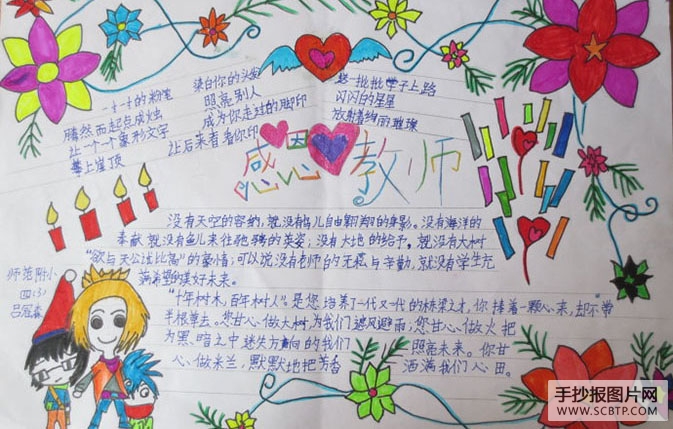 一寸一寸的粉笔
腾然而起总成烛
让一个个象形文字
攀上崖顶
染白你的头发
照亮别人
成为你走过的脚印
让后来者看你印
整一批批学子上路
闪闪的星星
放射着绚丽璀璨
感恩教师
没有天空的容纳，就没有鸟儿自由翱翔的身影。没有海洋的
奉献就没有鱼儿来往驰骋的英姿；没有大地的给予，就没有大树
“欲与天公试比高”的豪情；可以说没有老师的无私与辛勤，就没有学生充
满希望的美好未来。
“十年树木，百年树人”是您培养了一代又一代的栋梁之才，你捧着一颗心来，却不带
半根草去。您甘心做大树为我们遮风避雨；您甘心做火把
为黑暗之中迷失方向的我们照亮未来。你甘
心做米兰，默默地把芳香洒满我们心田。
师范附小
四(5)
手抄报图片网
WWW.SCBTP.COM